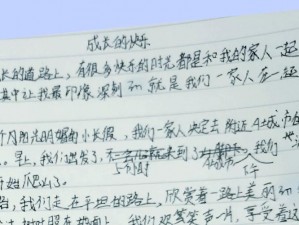 成长的快乐
长的道路上，有很多快乐的时光都是和我的家人一起
其中让我最印象深刻的就是我们一家人去
个月阳光明媚的小长假，我们一家人决定去附近
。早上，我们出发了，来到了 我们
5小时
下午
始爬山。
路，我们走在平坦的路上，欣赏着一路上美丽的
我们欢声笑声一片，享受着这